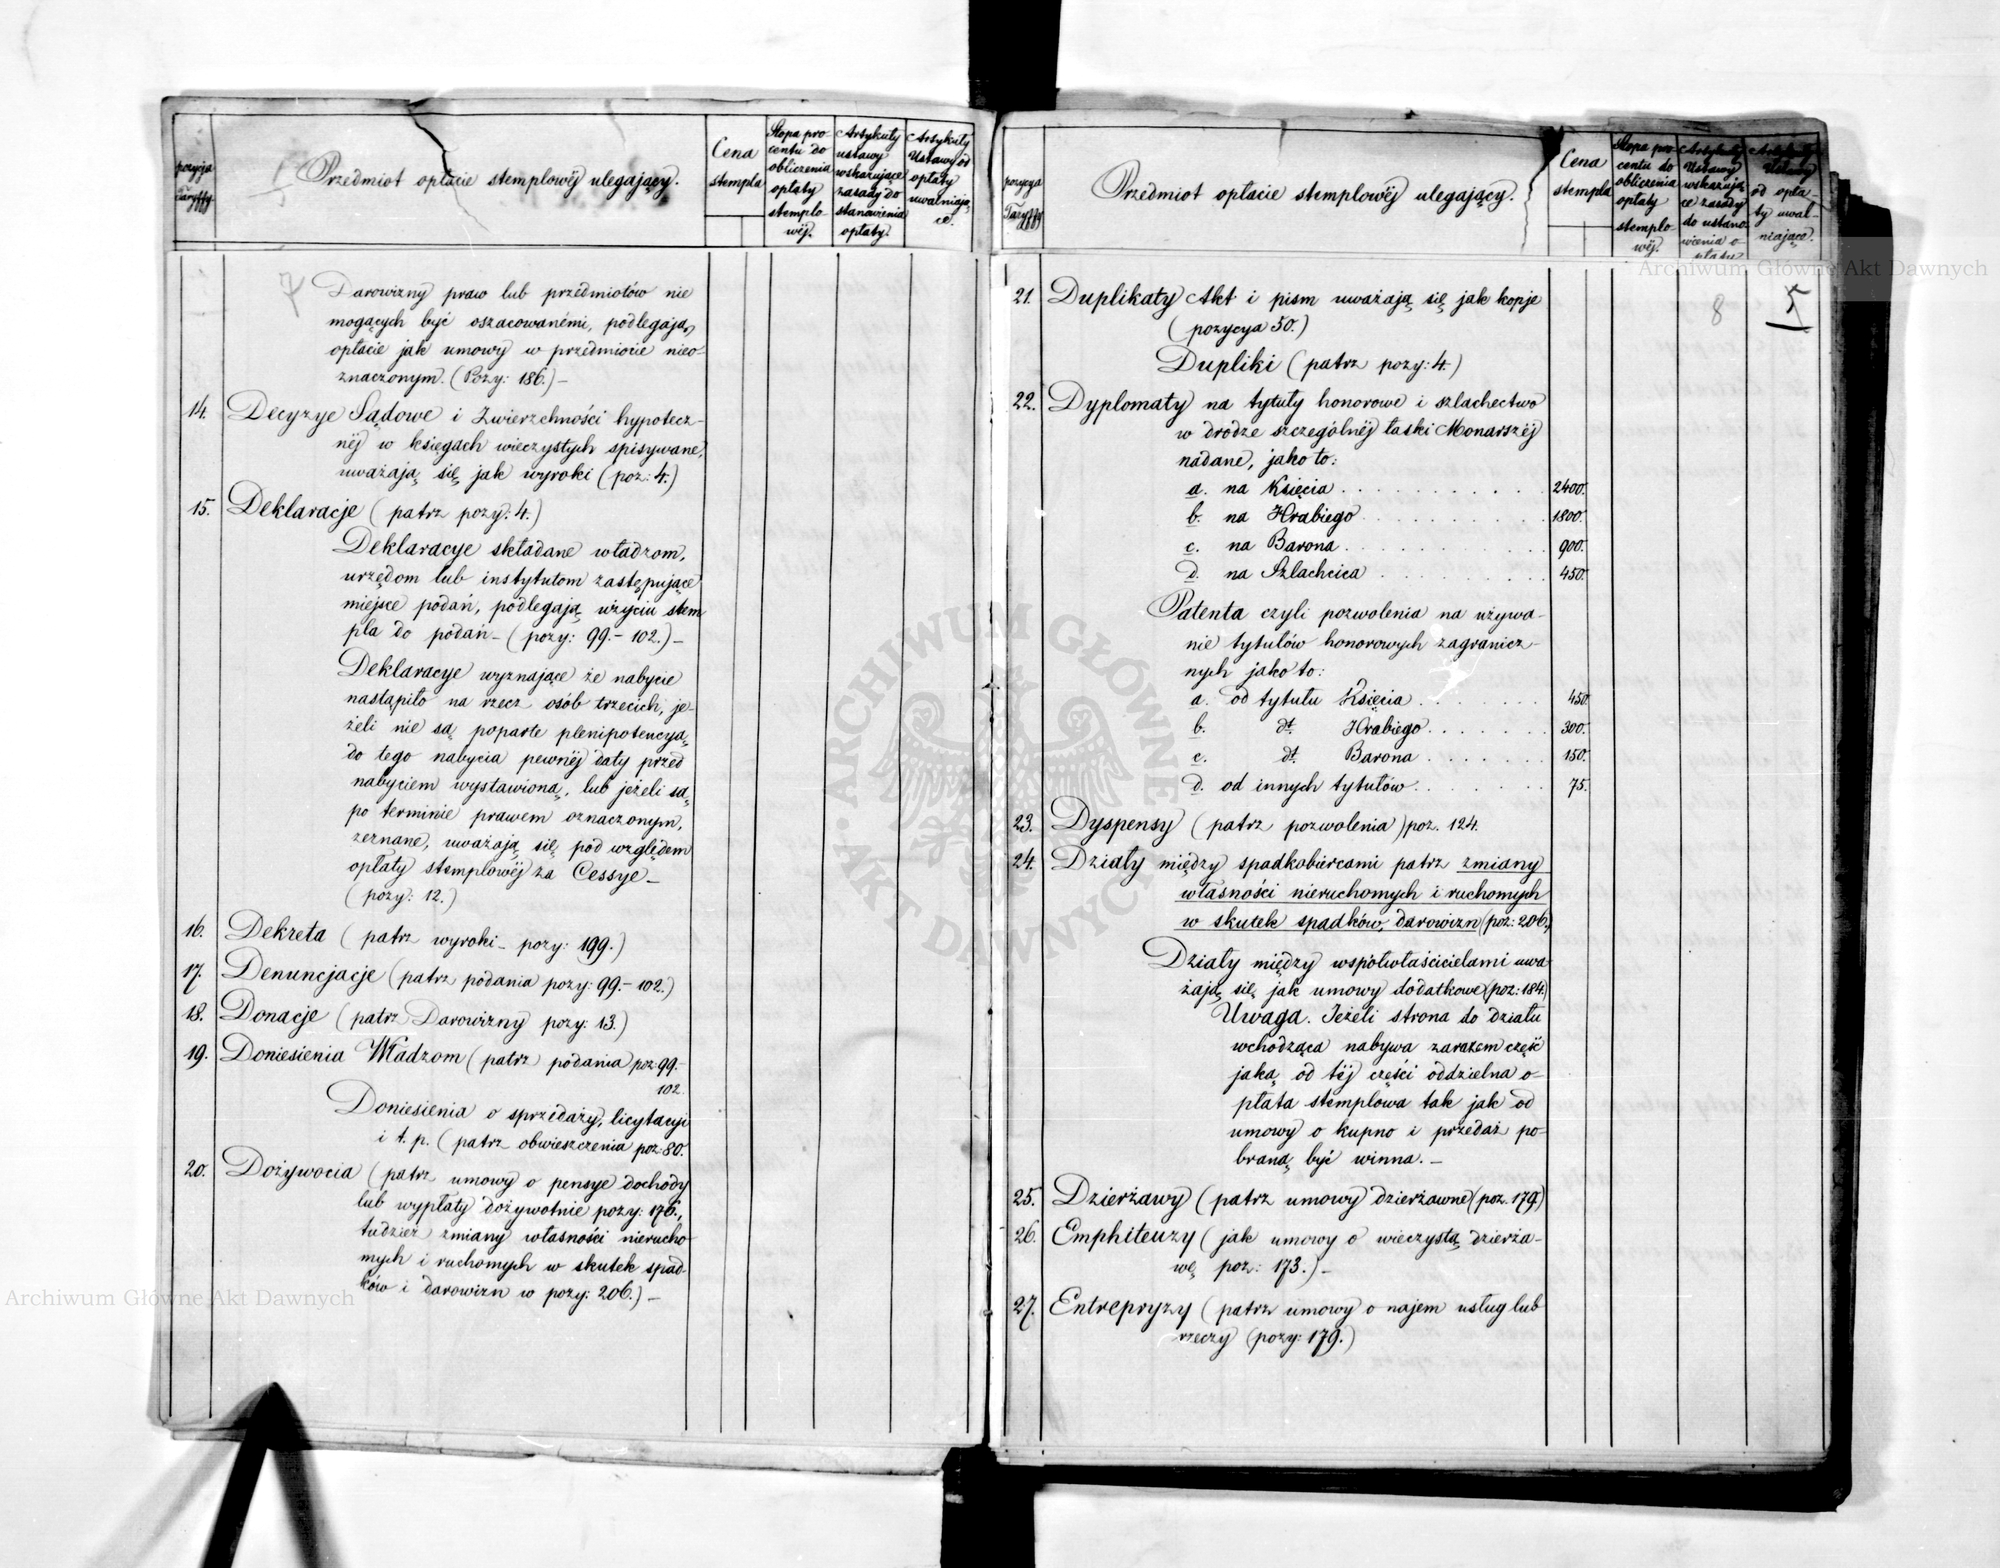 pozycja
Taryffy
Przedmiot opłacie stemplowéj ulegający.
Cena
stempla
Stopa pro-
centu do
obliczenia
opłaty
stemplo-
wéj.
Artykuły
ustawy
wskazujące
zasady do
stanowienia
opłaty.
Artykuły
Ustawy od
opłaty
uwalniają-
ce.
Darowizny praw lub przedmiotów nie
mogących być oszacowanémi, podlegają
opłacie jak umowy w przedmiocie nieo-
znaczonym. (Pozy: 186.)—
14. Decyzye Sądowe i Zwierzchności hypotecz-
néj w księgach wieczystych spisywane,
uważają się jak wyroki (poz: 4.)
15. Deklaracje (patrz pozy: 4.)
Deklaracye składane władzom,
urzędom lub instytutom zastępujące
miejsce podań, podlegają użyciu stem
pla do podań— (pozy: 99.— 102.)—
Deklaracye wyznające że nabycie
nastąpiło na rzecz osób trzecich, je-
żeli nie są poparte plenipotencyą
do tego nabycia pewnéj daty przed
nabyciem wystawioną, lub jeżeli są
po terminie prawem oznaczonym,
zeznane, uważają się pod względem
opłaty stemplowéj za Cessye—
(pozy: 12.)
16. Dekreta (patrz wyroki— pozy: 199.)
17. Denuncjacje (patrz podania pozy: 99.— 102.)
18. Donacje (patrz Darowizny pozy: 13.)
19. Doniesienia Władzom (patrz podania poz: 99.—
102.
Doniesienia o sprzedaży, licytacyi
i t. p. (patrz obwieszczenia poz: 80.
20. Dożywocia (patrz umowy o pensye dochody
lub wypłaty dożywotnie pozy: 176.,
tudzież zmiany własności nierucho-
mych i ruchomych w skutek spad-
ków i darowizn w pozy: 206.)—
pozycya
Taryffy
Przedmiot opłacie stemplowéj ulegający.
Cena
stempla
Stopa pro-
centu do
obliczenia
opłaty
stemplo-
wéj.
Artykuły
Ustawy
wskazują-
ce zasady
do ustano-
wienia o-
płaty
Artykuły
Ustawy
od opła-
ty uwal-
niające.
8
5
21. Duplikaty Akt i pism uważają się jak kopje
(pozycya 50.)
Dupliki (patrz pozy: 4.)
22. Dyplomaty na tytuły honorowe i szlachectwo
w drodze szczególnéj łaski Monarszéj
nadane, jako to:
a. na Księcia . . . . . . . . . . 2400.
b. na Hrabiego . . . . . . . . . 1800.
c. na Barona . . . . . . . . . . 900.
d. na Szlachcica . . . . . . . . 450.
Patenta czyli pozwolenia na używa-
nie tytułów honorowych zagranicz-
nych jako to:
a. od tytułu Księcia . . . . . . 450.
b. dt. Hrabiego . . . . . . 300.
c. dt. Barona . . . . . . 150.
d. od innych tytułów . . . . . . 75.
23. Dyspensy (patrz pozwolenia) poz. 124.
24. Działy między spadkobiercami patrz zmiany
własności nieruchomych i ruchomych
w skutek spadków, darowizn (poz: 206.)
Działy między współwłaścicielami uwa
żają się jak umowy dodatkowe (poz: 184.)
Uwaga. Jeżeli strona do działu
wchodząca nabywa zarazem część
jaką od téj części oddzielna o-
płata stemplowa tak jak od
umowy o kupno i przedaż po-
braną być winna.—
25. Dzierżawy (patrz umowy dzierżawne (poz. 179.)
26. Emphiteuzy (jak umowy o wieczystą dzierża-
wę poz: 173.)—
27. Entrepryzy (patrz umowy o najem usług lub
rzeczy (pozy: 179.)
Archiwum Główne Akt Dawnych
Archiwum Główne Akt Dawnych
ARCHIWUM GŁÓWNE
AKT DAWNYCH